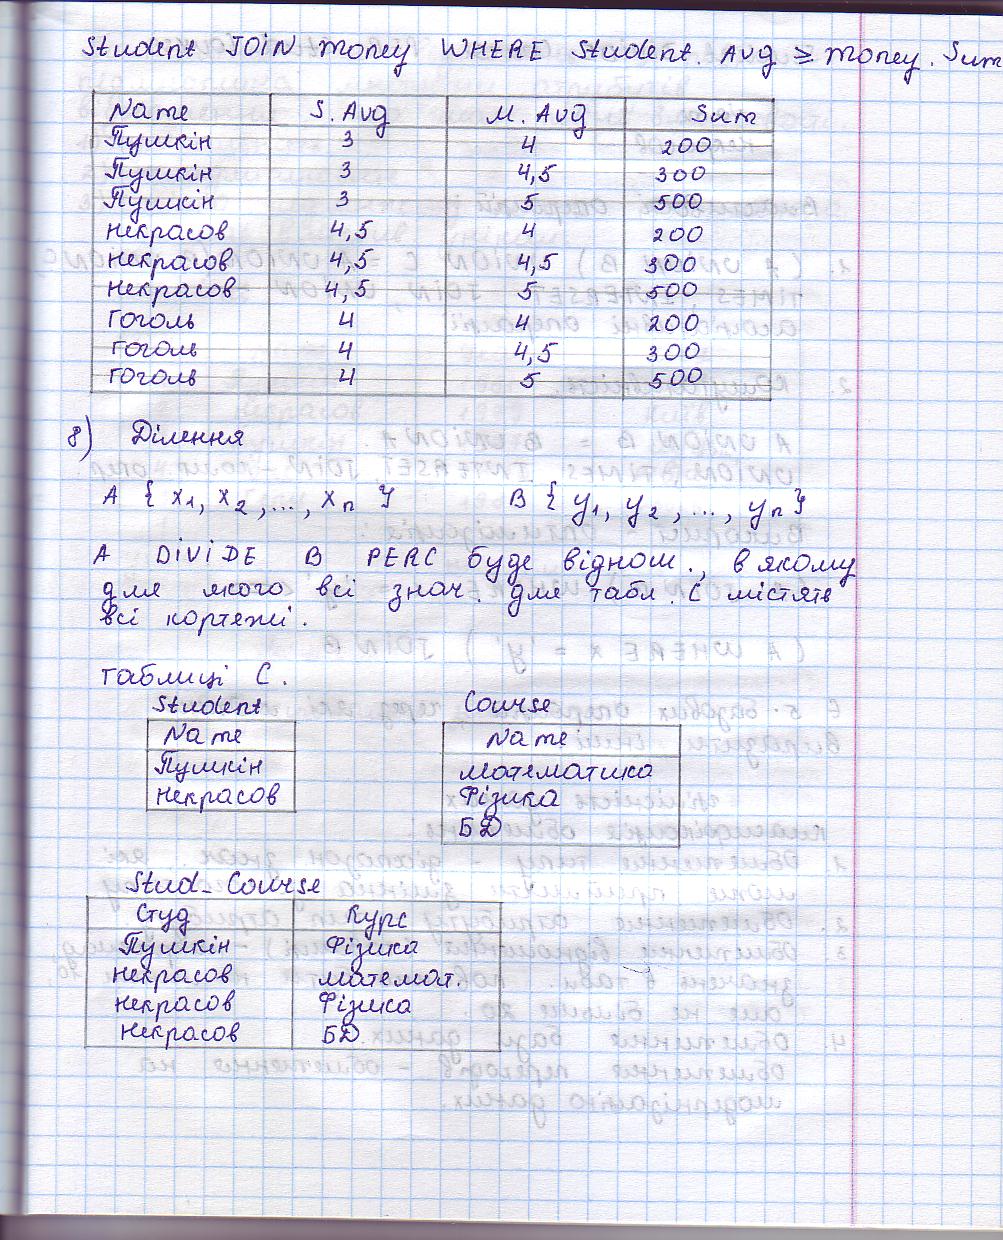 Student JOIN money WHERE Student. Avg ≥ money. Sum
Name S. Avg M. Avg Sum
Пушкін 3 4 200
Пушкін 3 4,5 300
Пушкін 3 5 500
Некрасов 4,5 4 200
Некрасов 4,5 4,5 300
Некрасов 4,5 5 500
Гоголь 4 4 200
Гоголь 4 4,5 300
Гоголь 4 5 500
8) Ділення
A { x1, x2, ..., xn } B { y1, y2, ..., yn }
A DIVIDE B PERC буде віднош., в якому
для якого всі знач. для табл. C містять
всі кортежі.
таблиці C.
Student Course
Name Name
Пушкін математика
Некрасов Фізика
БД
Stud_Course
Студ Курс
Пушкін Фізика
Некрасов математ.
Некрасов Фізика
Некрасов БД